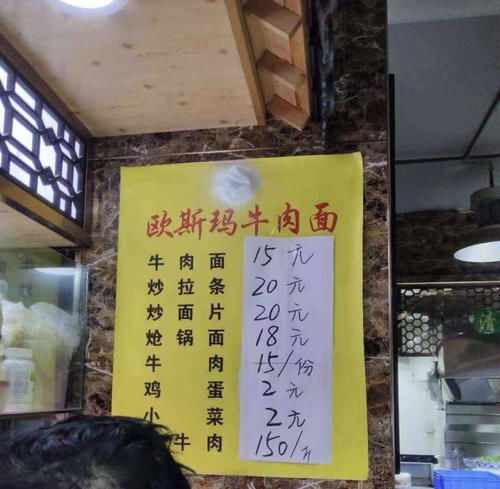 欧斯玛牛肉面
牛肉面 15元
炒拉条 20元
炒面片 20元
炝锅面 18元
牛肉 15/份
鸡蛋 2元
小菜 2元
牛肉 150/斤
清